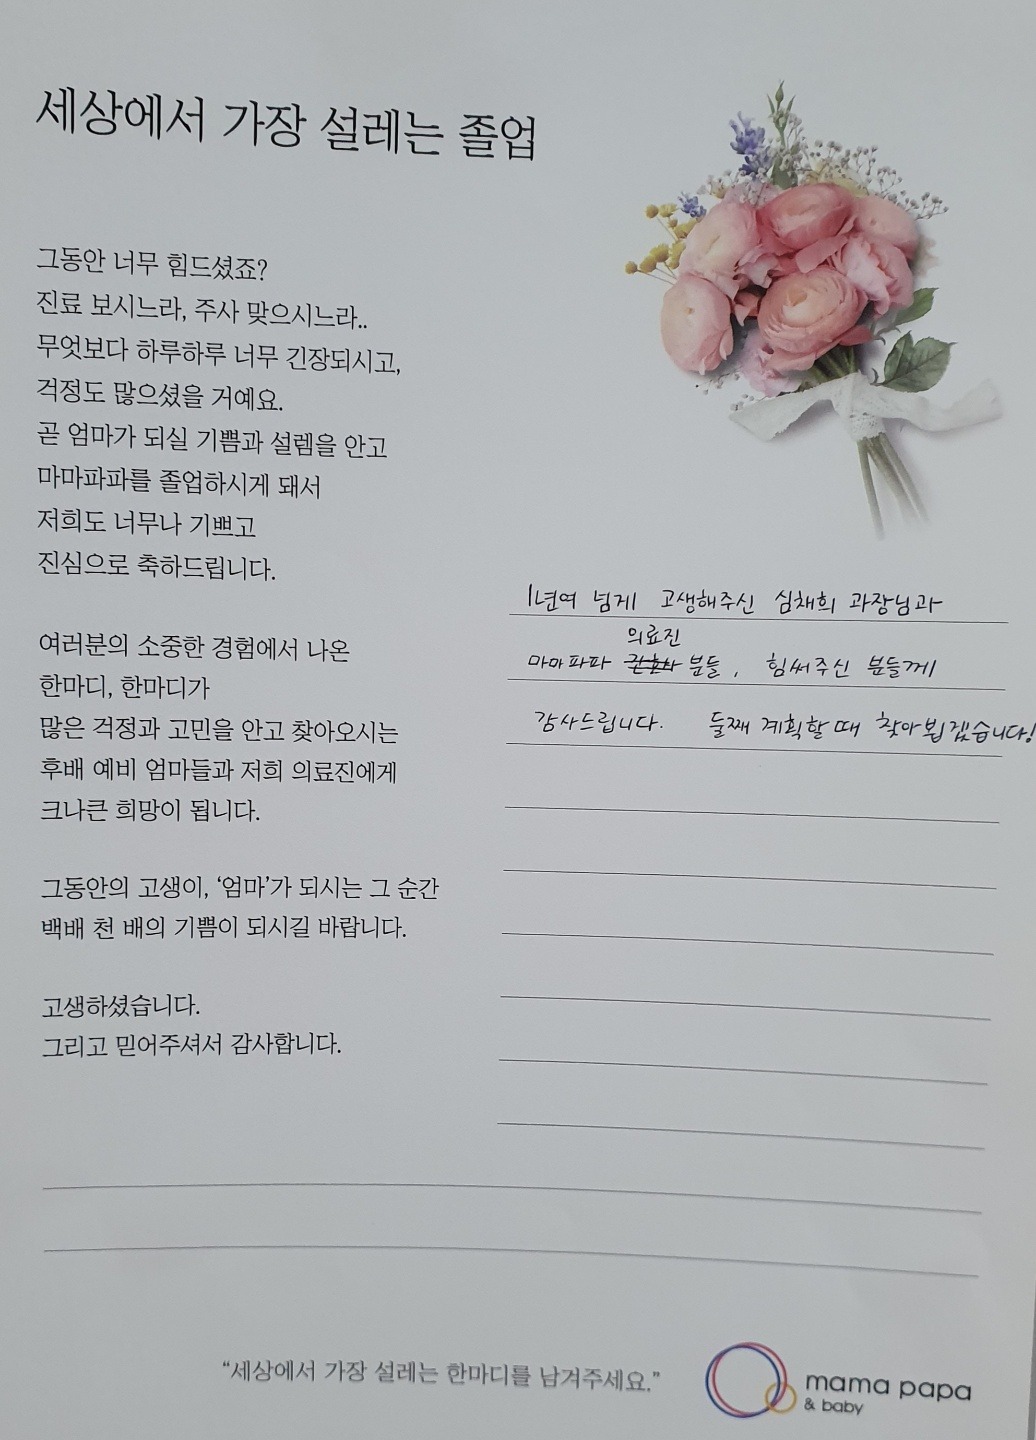 세상에서 가장 설레는 졸업
그동안 너무 힘드셨죠?
진료 보시느라, 주사 맞으시느라..
무엇보다 하루하루 너무 긴장되시고,
걱정도 많으셨을 거예요.
곧 엄마가 되실 기쁨과 설렘을 안고
마마파파를 졸업하시게 돼서
저희도 너무나 기쁘고
진심으로 축하드립니다.
여러분의 소중한 경험에서 나온
한마디, 한마디가
많은 걱정과 고민을 안고 찾아오시는
후배 예비 엄마들과 저희 의료진에게
크나큰 희망이 됩니다.
그동안의 고생이, ‘엄마’가 되시는 그 순간
백배 천 배의 기쁨이 되시길 바랍니다.
고생하셨습니다.
그리고 믿어주셔서 감사합니다.
1년여 넘게 고생해주신 심채희 과장님과
의료진
마마파파 간호사 분들, 힘써주신 분들께
감사드립니다. 둘째 계획할 때 찾아뵙겠습니다!
“세상에서 가장 설레는 한마디를 남겨주세요.”
mama papa
& baby